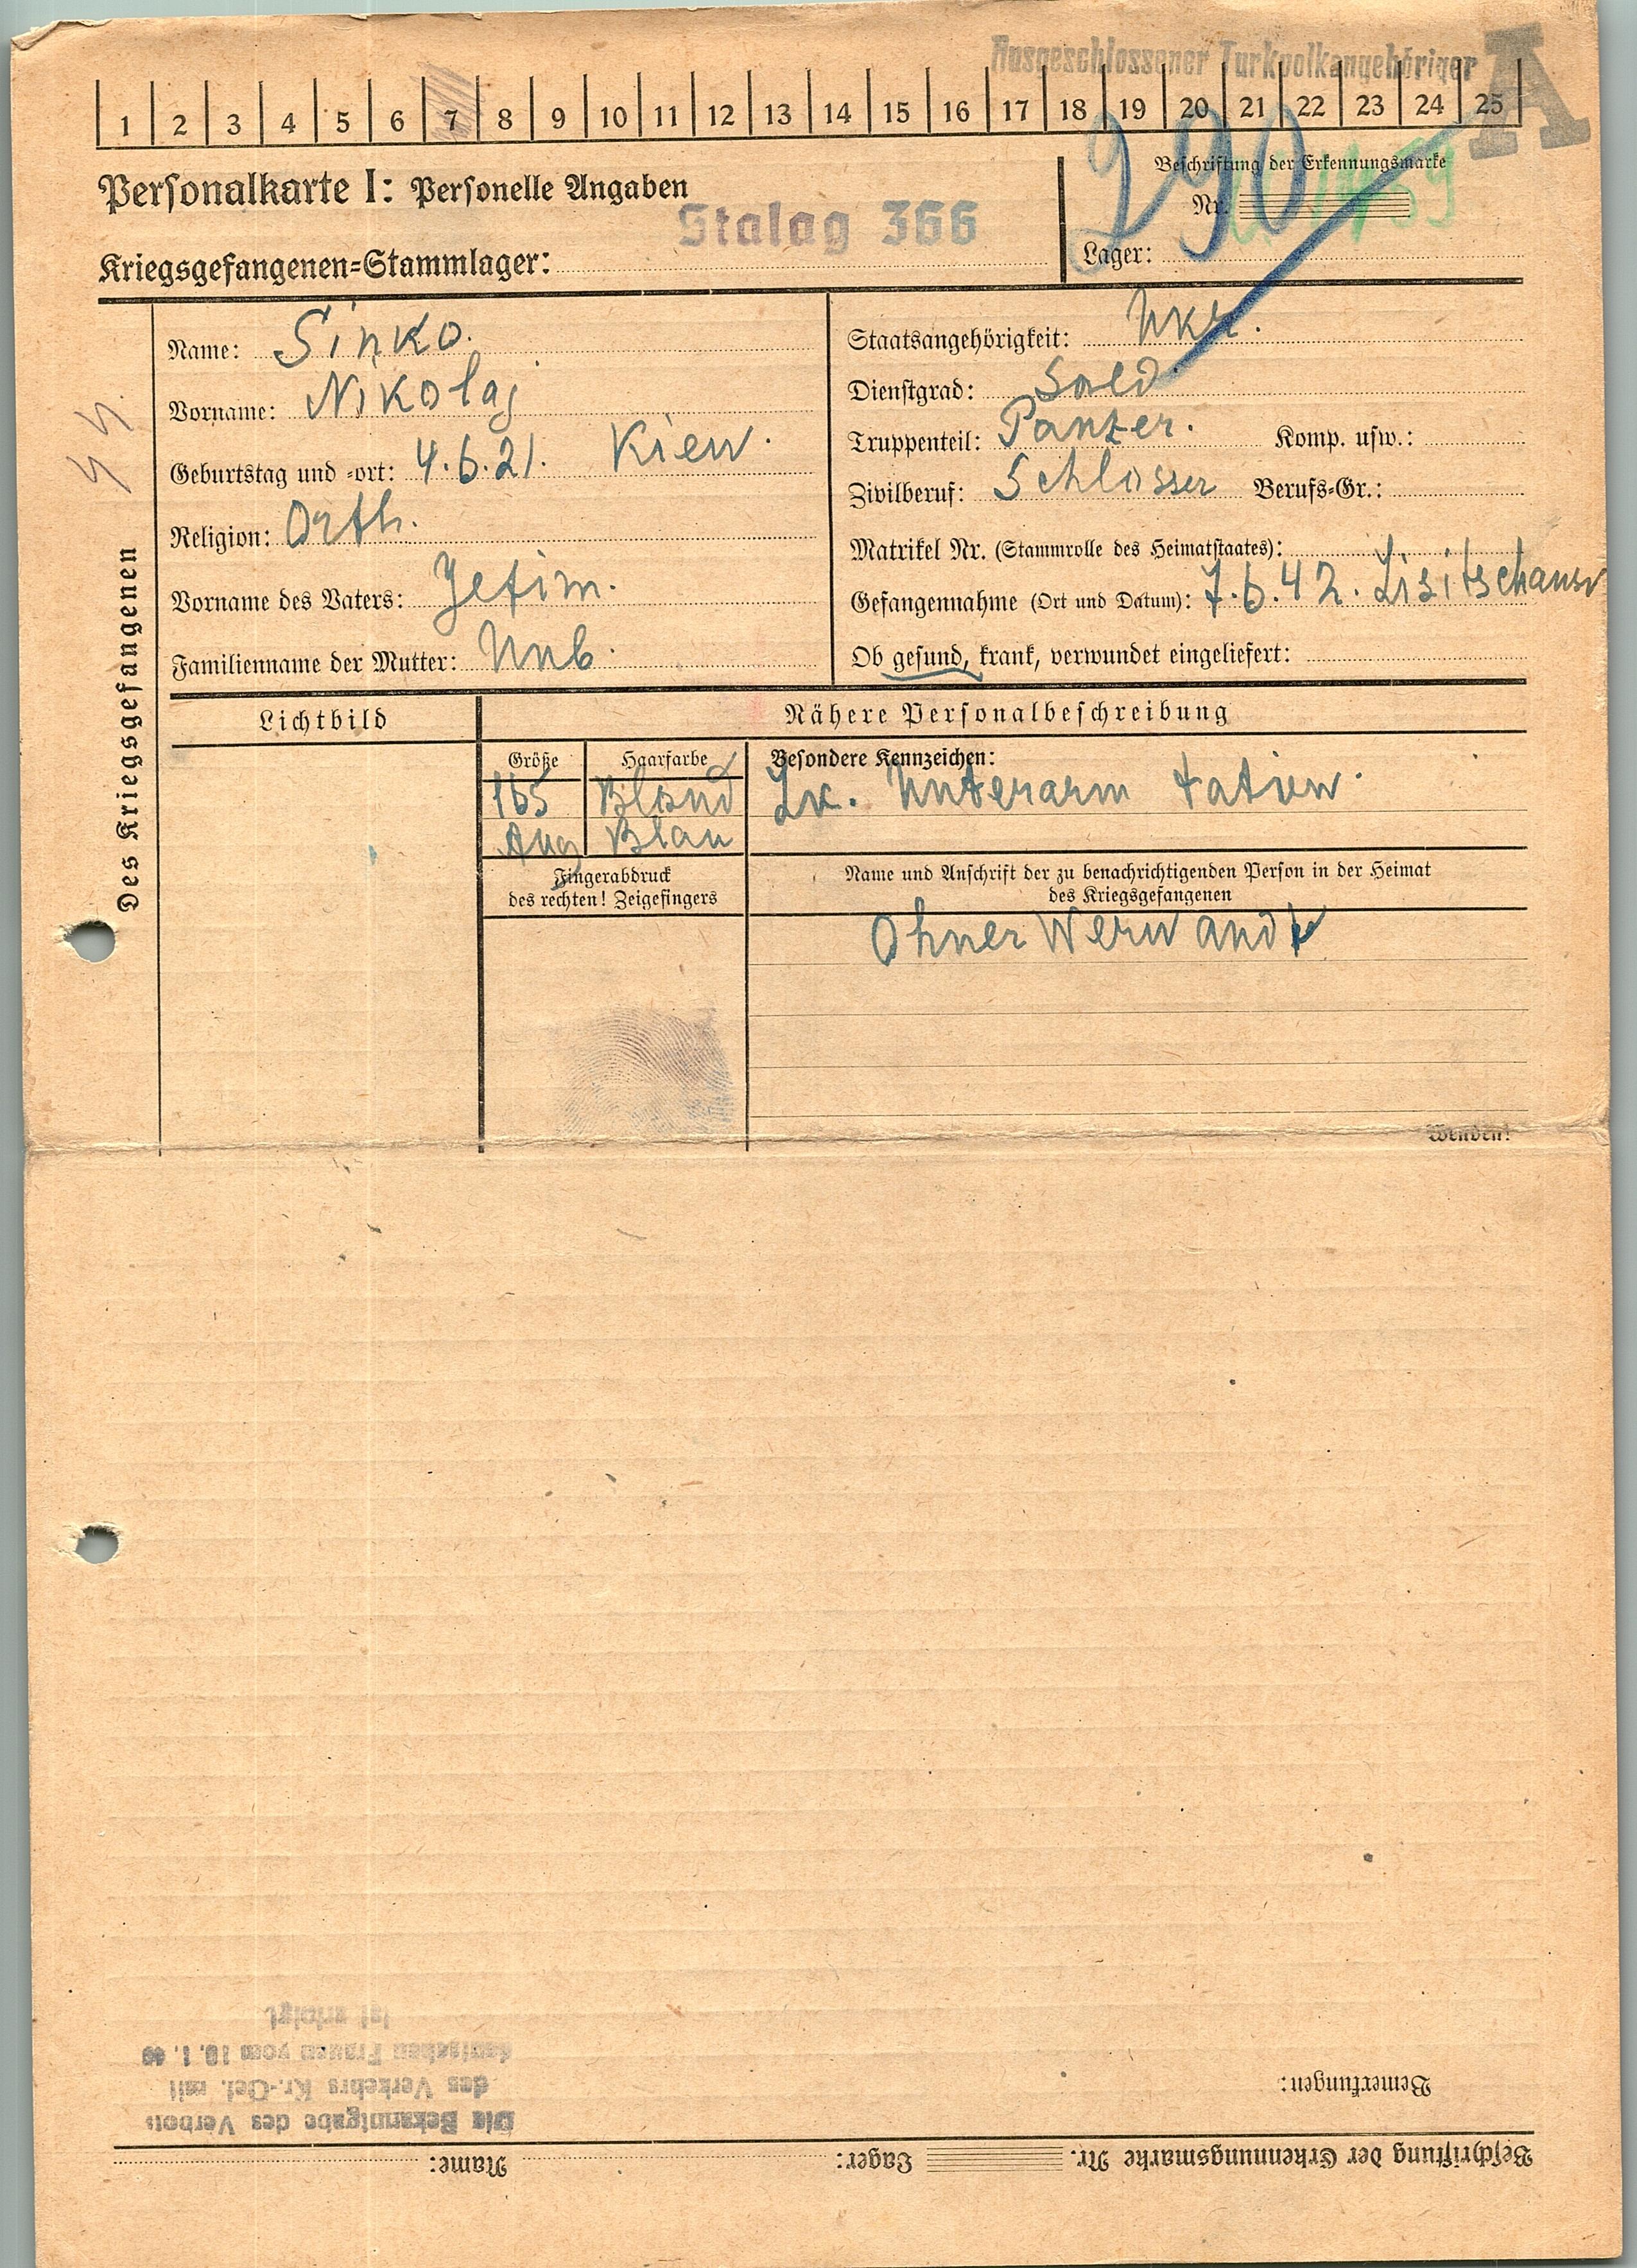 Ausgeschlossener Turkvolkangehöriger A
1 2 3 4 5 6 7 8 9 10 11 12 13 14 15 16 17 18 19 20 21 22 23 24 25
290
Personalkarte I: Personelle Angaben
Beschriftung der Erkennungsmarke
Nr.
Stalag 366
Kriegsgefangenen=Stammlager:
Lager:
Des Kriegsgefangenen
Name: Sinko.
Vorname: Nikolaj
Geburtstag und =ort: 4.6.21. Kiew.
Religion: Orth.
Vorname des Vaters: Jefim.
Familienname der Mutter: Unb.
Staatsangehörigkeit: Ukr.
Dienstgrad: Sold
Truppenteil: Panzer. Komp. usw.:
Zivilberuf: Schlosser Berufs=Gr.:
Matrikel Nr. (Stammrolle des Heimatstaates):
Gefangennahme (Ort und Datum): 7.6.42. Lisitschansk
Ob gesund, krank, verwundet eingeliefert:
Lichtbild
Nähere Personalbeschreibung
Größe Haarfarbe Besondere Kennzeichen:
165 Blond Lk. Unterarm tatiew.
Aug Blau
Fingerabdruck
des rechten! Zeigefingers
Name und Anschrift der zu benachrichtigenden Person in der Heimat
des Kriegsgefangenen
Ohner Werwandt
Wenden!
Beschriftung der Erkennungsmarke Nr. Lager: Name:
Bemerkungen:
Die Bekanntgabe des Verbots
des Verkehrs Kr.-Gef. mit
deutschen Frauen vom 10.1.40
ist erfolgt